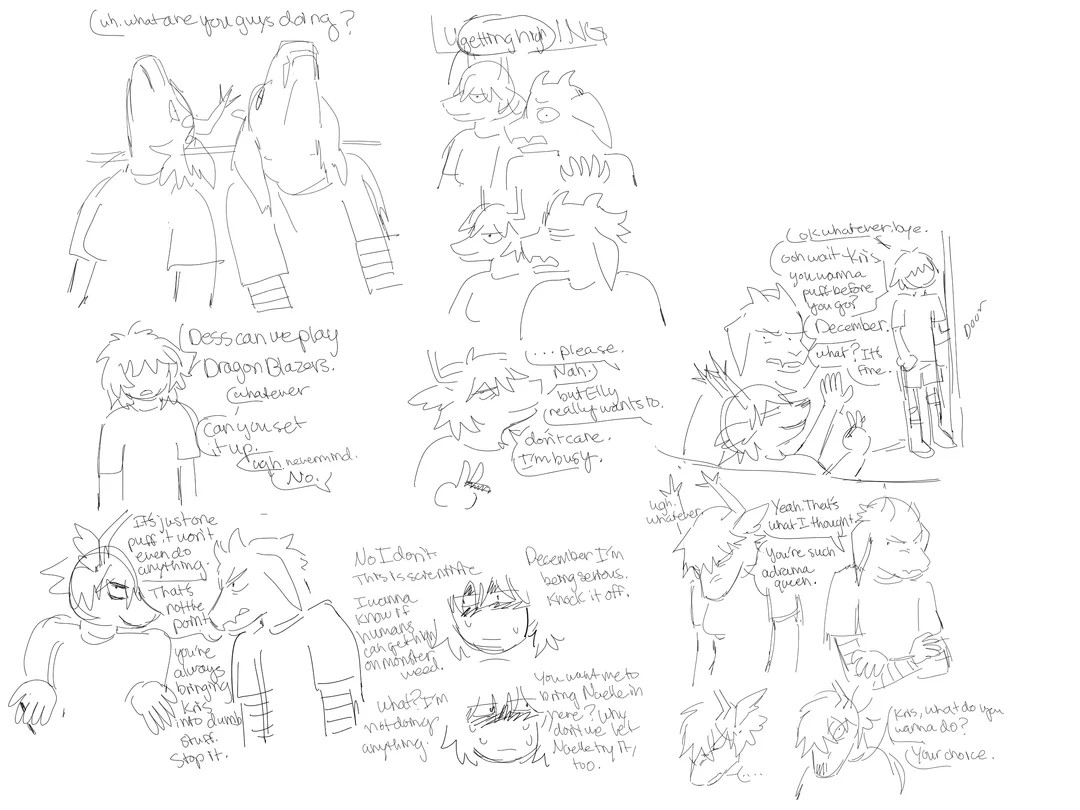 uh. what are you guys doing?
LUgetting highING
Dess can we play
Dragon Blazers.
whatever
Can you set
it up.
ugh. nevermind.
No.
... please.
Nah.
but Elly
really wants to.
don't care.
I'm busy.
ok whatever. bye.
ooh wait - Kris
you wanna
puff before
you go?
December.
what? It's
fine.
Door
It's just one
puff it won't
even do
anything.
That's
not the
point
you're
always
bringing
Kris
into dumb
stuff.
Stop it.
No I don't
This is scientific
I wanna
know if
humans
can get high
on monster
weed.
December I'm
being serious.
Knock it off.
what? I'm
not doing
anything.
You want me to
bring Noelle in
here? why
don't we let
Noelle try it,
too.
ugh.
whatever.
Yeah. That's
what I thought.
You're such
a drama
queen.
....
Kris, what do you
wanna do?
Your choice.